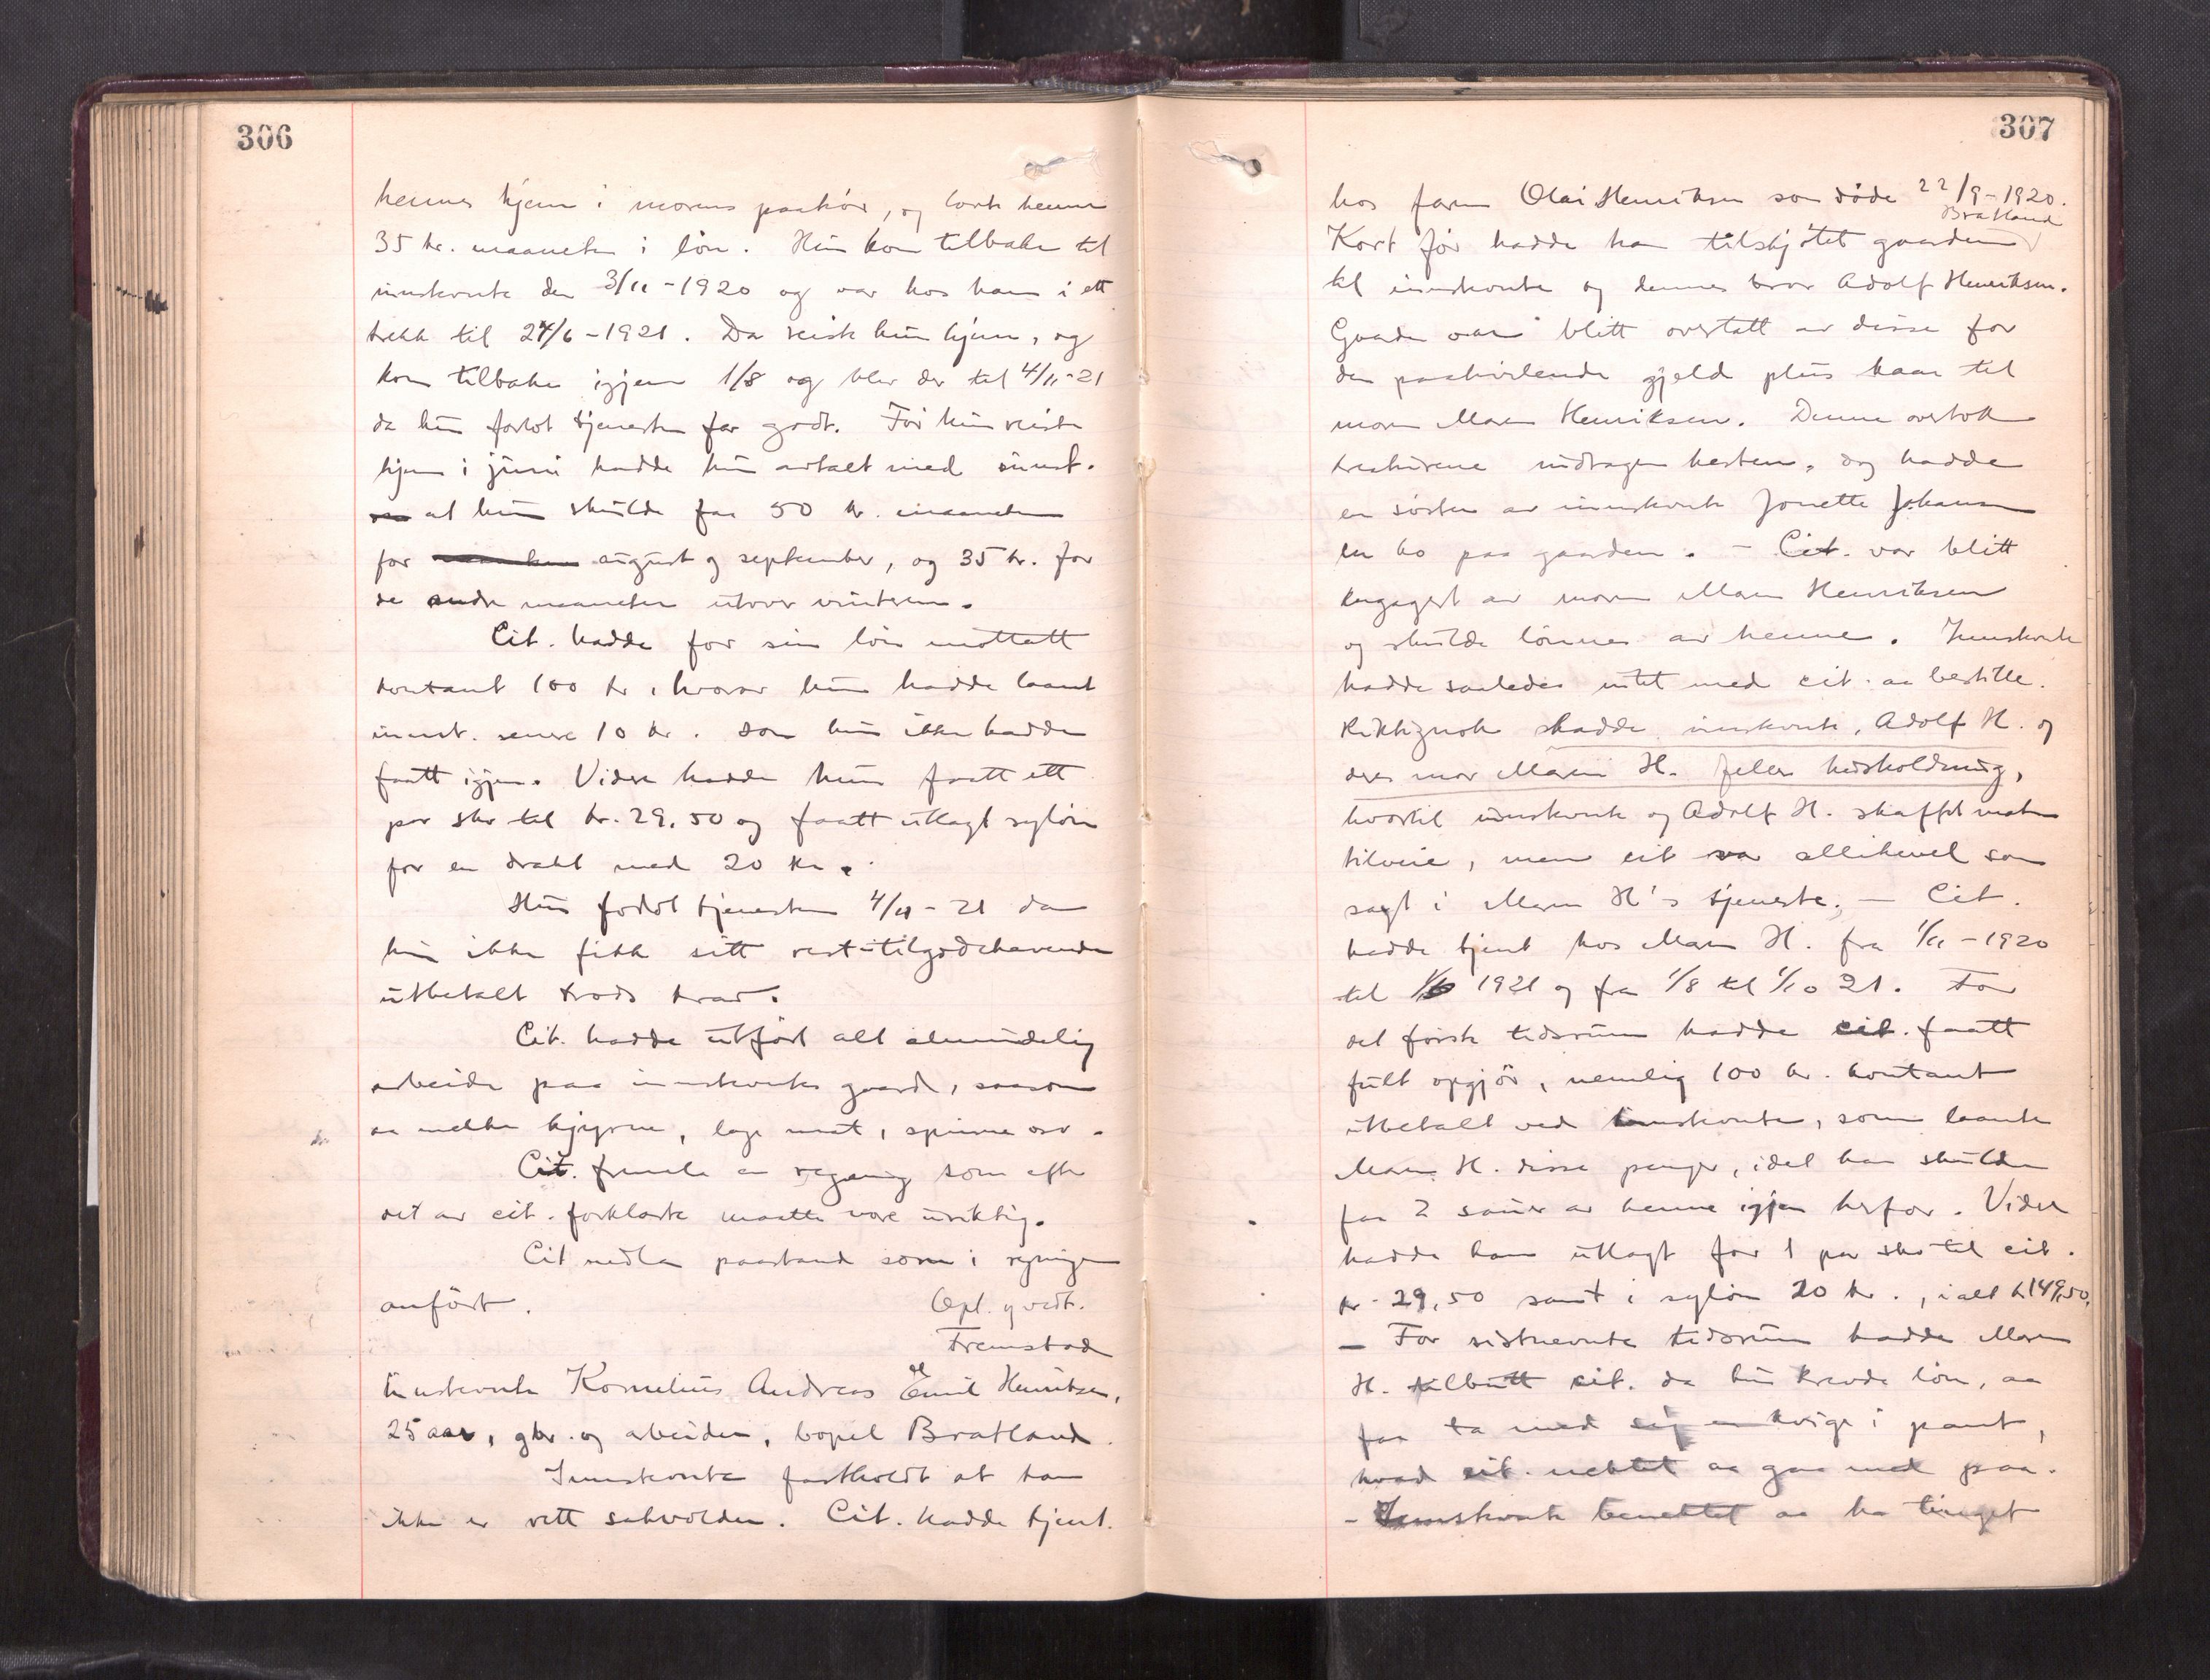 306
hennes hjem i morens paahör, og lovte henne
35 kr. maaneden i lön. Hun kom tilbake til
innstevnte den 3/11-1920 og var hos ham i ett
trekk til 24/6-1921. Da reiste hun hjem, og
kom tilbake igjen 1/8 og blev der til 4/11-21
da hun forlot tjenesten for godt. För hun reiste
hjem i juni hadde hun avtalt med innst.
at hun skulde faa 50 kr. maaneden
for august og september, og 35 kr. for
de andre maaneder utover vinteren.
Cit. hadde for sin lön mottatt
kontant 100 kr, hvorav hun hadde laant
innst. senere 10 kr. som hun ikke hadde
faatt igjen. Videre hadde hun faatt ett
par sko til kr. 29,50 og faatt utlagt sylön
for en drakt med 20 kr.
Hun forlot tjenesten 4/11-21 da
hun ikke fikk sitt rest-tilgodehavende
utbetalt trods krav.
Cit. hadde utfört alt almindelig
arbeide paa innstevntes gaard, saasom
aa melke kjyrne, lage mat, spinne osv.
Cit. fremla en regning som efter
det av cit. forklarte maatte være uriktig.
Cit. nedla paastand som i regningen
anfört. Opl. og vedt.
Fremstod
innstevnte Kornelius Andreas Emil Henriksen,
25 aar, gbr. og arbeider, bopel Bratland.
Innstevnte fastholdt at han
ikke er rett saksvolder. Cit. hadde tjent
307
hos faren Olai Henriksen som döde 22/9-1920.
Bratland
Kort för hadde han tilskjötet gaarden
til innstevnte og dennes bror Adolf Henriksen.
Gaarden var blitt overtatt av disse for
den paahvilende gjeld plus kaar til
moren Maren Henriksen. Denne overtok
kreaturene undtagen hesten, og hadde
en söster av innstevnte Jonette Johansen
bo paa gaarden. - Cit. var blitt
engagert av moren Maren Henriksen
og skulde lönnes av henne. Innstevnte
hadde saaledes intet med cit. aa bestille.
Riktignok hadde innstevnte, Adolf H. og
deres mor Maren H. felles husholdning,
hvortil innstevnte og Adolf H. skaffet maten
tilveie, men cit var allikevel som
sagt i Maren H's tjeneste. - Cit.
hadde tjent hos Maren H. fra 1/11-1920
til 1/6 1921 og fra 1/8 til 1/10 21. For
det förste tidsrum hadde cit. faatt
fult opgjör, nemlig 100 kr. kontant
utbetalt ved innstevnte, som laante
Maren H. disse penger, idet han skulde
faa 2 sauer av henne igjen herfor. Videre
hadde han utlagt for 1 par sko til cit.
kr. 29,50 samt i sylön 20 kr., ialt kr 149,50.
- For sistnevnte tidsrum hadde Maren
H. tilbutt cit. da hun krevde lön, aa
faa ta med sig en kvige i pant,
hvad cit. nektet aa gaa med paa.
- Innstevnte benektet aa ha tinget